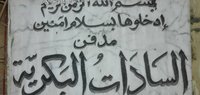 بسم الله الرحمن الرحيم
إدخلوها بسلام آمنين
مدفن
السادات البكرية